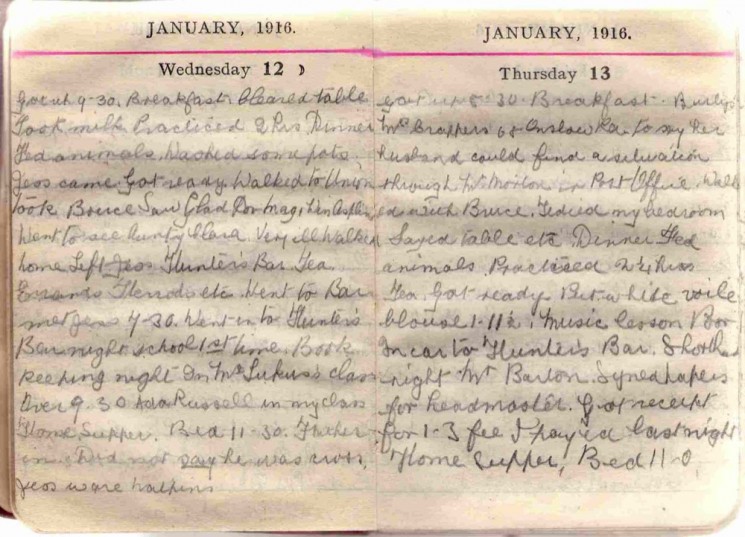 JANUARY, 1916.
Wednesday 12
Got up 9-30. Breakfast. Cleared table
Took milk Practiced 2 hrs Dinner
Fed animals. Washed some pots.
Jess came. Got ready. Walked to Union
Took Bruce Saw Glad Don Mag,
Went to see Aunty Clara. Very ill Walked
home Left Jess Hunter's Bar Tea
Errands etc. Went to Bar
met Jess 7-30. Went in to Hunter's
Bar night school 1st time. Book
keeping night In Mr class
Over 9-30 Ada Russell in my class
Home Supper. Bed 11-30. Father
in. Did not say he was cross,
Jess ware
JANUARY, 1916.
Thursday 13
Got up 8-30. Breakfast.
Mrs of Onslow Rd to say her
husband could find a situation
through Mr Morton in Post Office. Walk
ed with Bruce. Tidied my bedroom
Layed table etc. Dinner Fed
animals. Practiced 2½ hrs
Tea. Got ready. Put white voile
blouse 1-11½. Music lesson
In car to Hunter's Bar. Shorthand
night Mr Barton. Syned papers
for headmaster. Got receipt
for 1-3 fee I payed last night
Home Supper, Bed 11-0